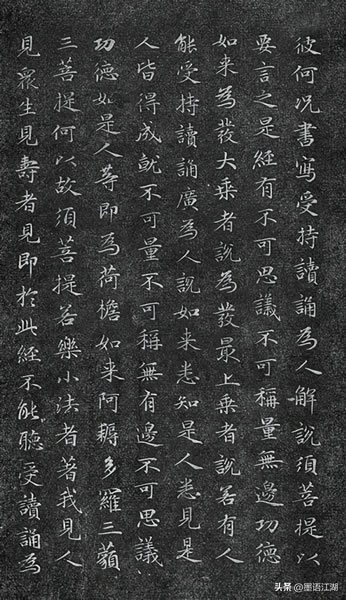 彼何况書寫受持讀誦為人解說須菩提以
要言之是經有不可思議不可稱量無邊功德
如来為發大乘者說為發最上乘者說若有人
能受持讀誦廣為人說如来悉知是人悉見是
人皆得成就不可量不可稱無有邊不可思議
功德如是人等即為荷擔如来阿耨多羅三藐
三菩提何以故須菩提若樂小法者著我見人
見眾生見壽者見即於此經不能聽受讀誦為
头条 @墨语江湖